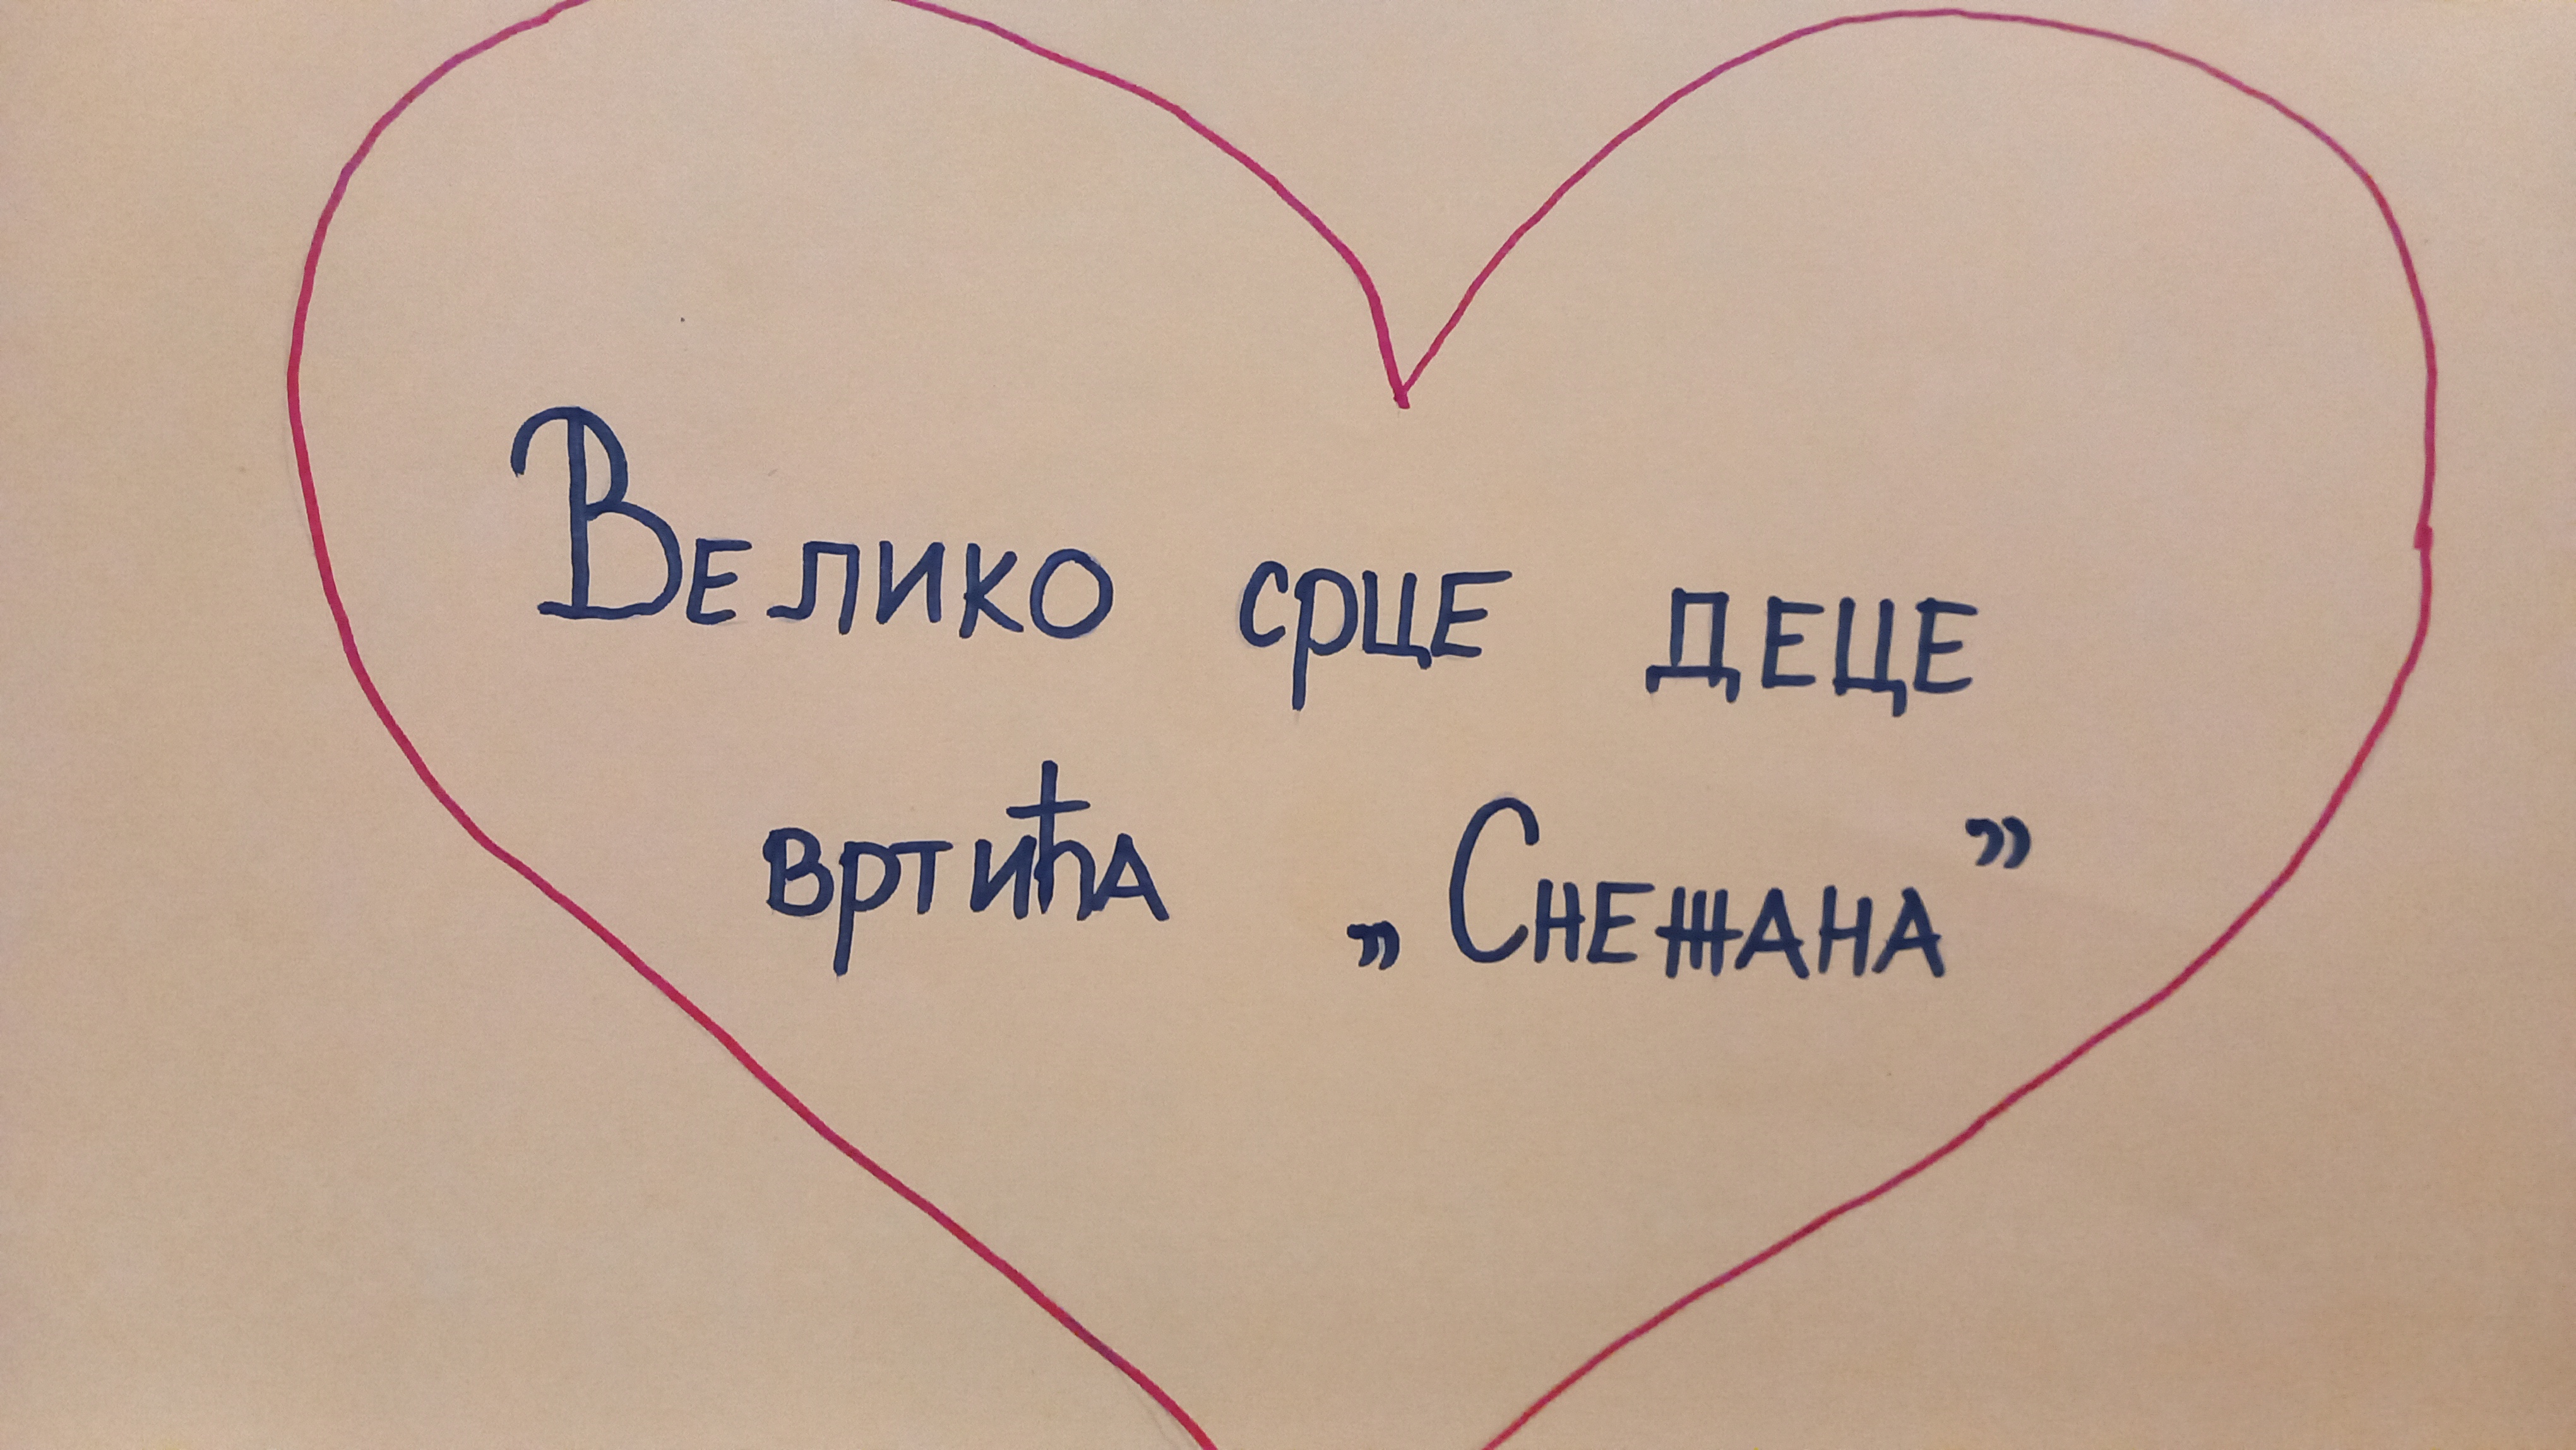 Велико срце деце
вртића „Снежана”